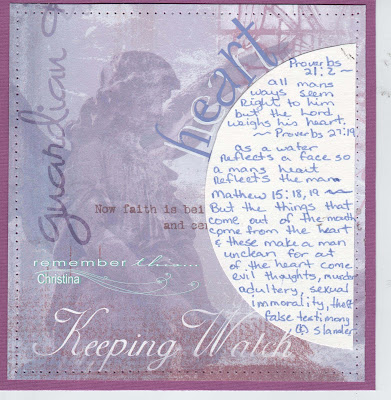 guardian
heart
Proverbs
21:2 ~
all mans
ways seem
Right to him
but the Lord
weighs his heart.
~ Proverbs 27:19
as a water
Reflects a face so
a mans heart
Reflects the man
Mathew 15:18,19 ~
But the things that
come out of the mouth
come from the heart
& these make a man
unclean for out
of the heart come
evil thoughts, murder
adultery, sexual
immorality, theft
false testimony
(&) slander
Now faith is bei
and cer
remember this...
Christina
Keeping Watch